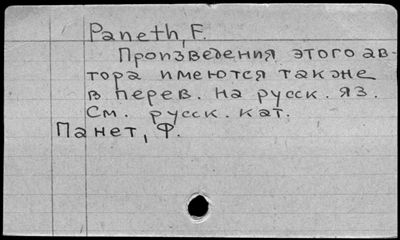 Paneth, F.
Произведения этого ав-
тора имеются также
в перев. на русск. яз.
См. русск. кат.
Панет, Ф.